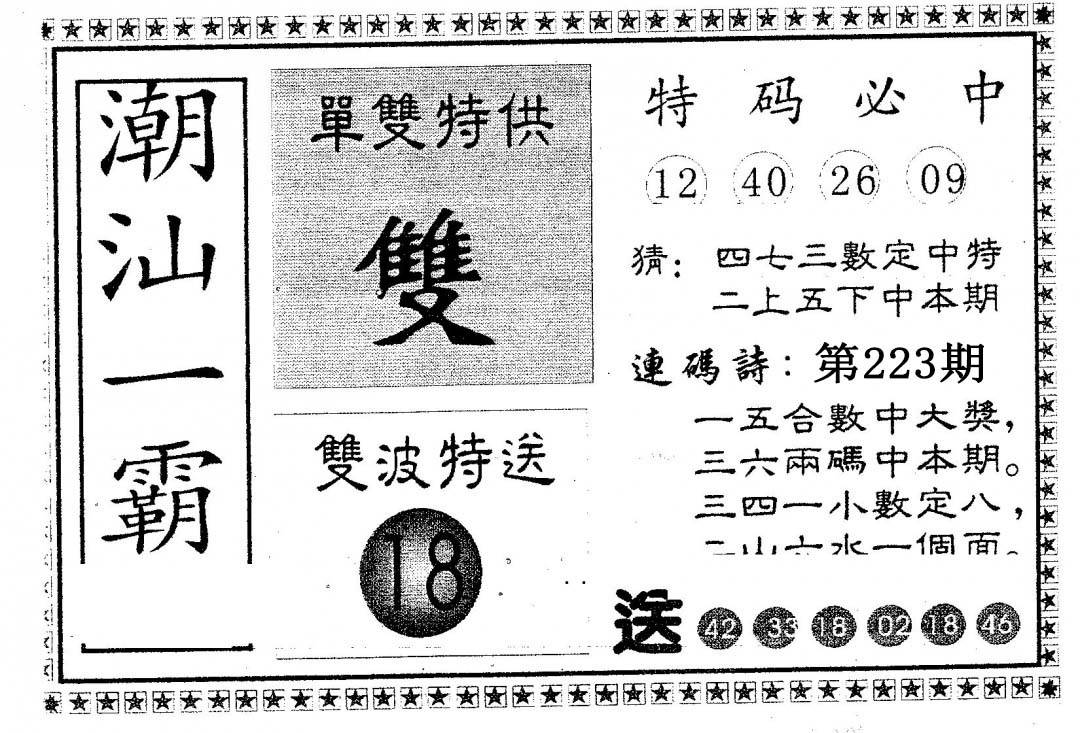 潮汕一霸
單雙特供
雙
雙波特送
18
特码必中
12 40 26 09
猜：四七三數定中特
二上五下中本期
連碼詩：第223期
一五合數中大獎，
三六兩碼中本期。
三四一小數定八，
二山六水一個面。
送 42 33 18 02 18 46